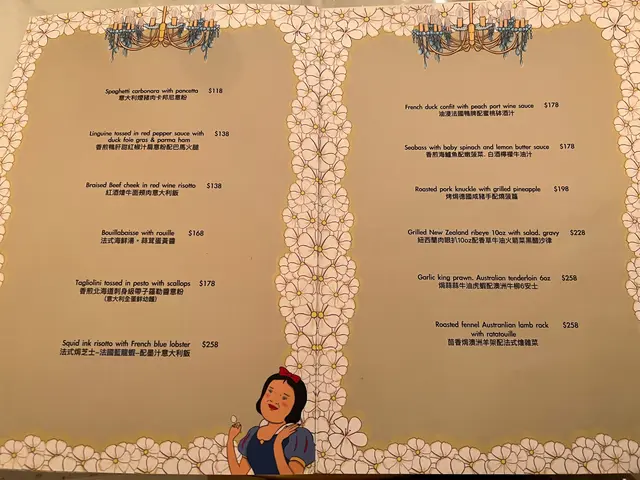 Spaghetti carbonara with pancetta $118
意大利煙豬肉卡邦尼意粉
Linguine tossed in red pepper sauce with $138
duck foie gras & parma ham
香煎鴨肝甜紅椒汁扁意粉配巴馬火腿
Braised Beef cheek in red wine risotto $138
紅酒燴牛面頰肉意大利飯
Bouillabaisse with rouille $168
法式海鮮湯，蒜茸蛋黃醬
Tagliolini tossed in pesto with scallops $178
香煎北海道刺身級帶子羅勒醬意粉
(意大利全蛋鮮幼麵)
Squid ink risotto with French blue lobster $258
法式焗芝士-法國藍龍蝦-配墨汁意大利飯
French duck confit with peach port wine sauce $178
油浸法國鴨髀配蜜桃砵酒汁
Seabass with baby spinach and lemon butter sauce $178
香煎海鱸魚配嫩菠菜，白酒檸檬牛油汁
Roasted pork knuckle with grilled pineapple $198
烤燒德國咸豬手配燒菠蘿
Grilled New Zealand ribeye 10oz with salad, gravy $228
紐西蘭肉眼扒10oz配香草牛油火箭菜黑醋沙律
Garlic king prawn, Australian tenderloin 6oz $258
焗蒜蓉牛油虎蝦配澳洲牛柳6安士
Roasted fennel Austranlian lamb rack $258
with ratatouille
茴香焗澳洲羊架配法式燴雜菜